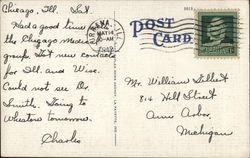 Chicago, Ill. Sat.
Had a good time with
the Chicago Medical
group. Got new contacts
for Ill. and Wisc.
Could not see Dr.
Smith. Going to
Wheaton tomorrow.
Charles
POST
CARD
Mr. William Gilbert
814 Hill Street
Ann Arbor,
Michigan